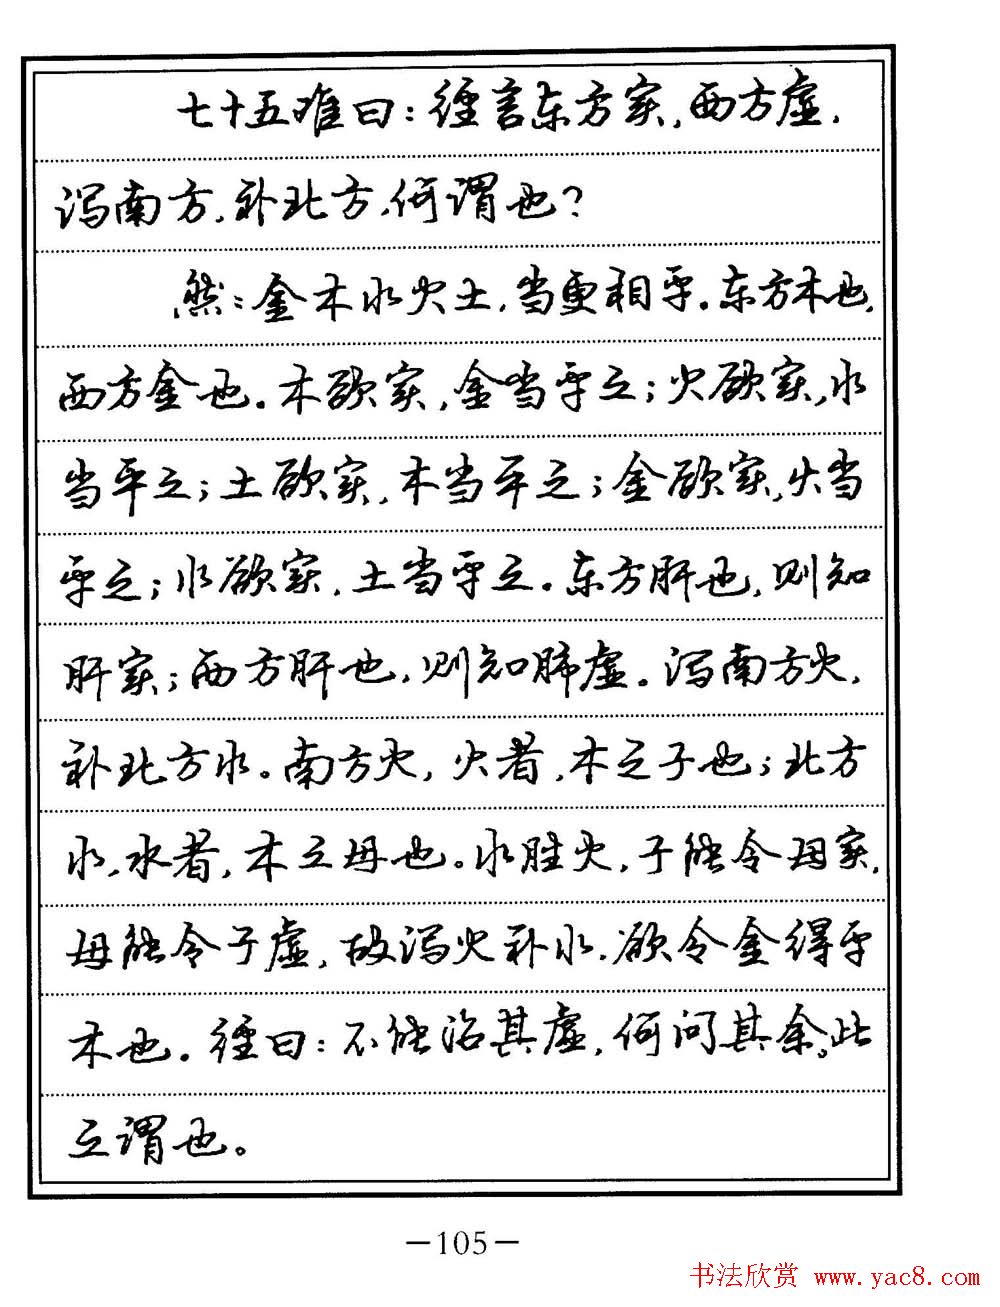 七十五难曰：经言东方实，西方虚，
泻南方，补北方，何谓也？
然：金木水火土，当更相平。东方木也，
西方金也。木欲实，金当平之；火欲实，水
当平之；土欲实，木当平之；金欲实，火当
平之；水欲实，土当平之。东方肝也，则知
肝实；西方肝也，则知肺虚。泻南方火，
补北方水。南方火，火者，木之子也；北方
水，水者，木之母也。水胜火，子能令母实，
母能令子虚，故泻火补水，欲令金得平
木也。经曰：不能治其虚，何问其余。此
之谓也。
—105—
书法欣赏 www.yac8.com